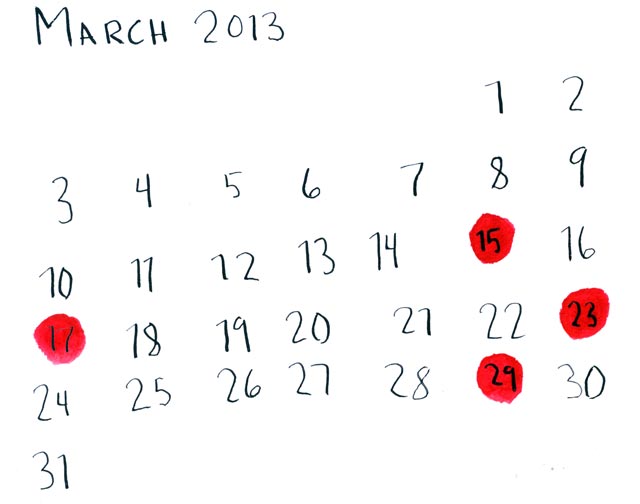 MARCH 2013
1 2
3 4 5 6 7 8 9
10 11 12 13 14 15 16
17 18 19 20 21 22 23
24 25 26 27 28 29 30
31